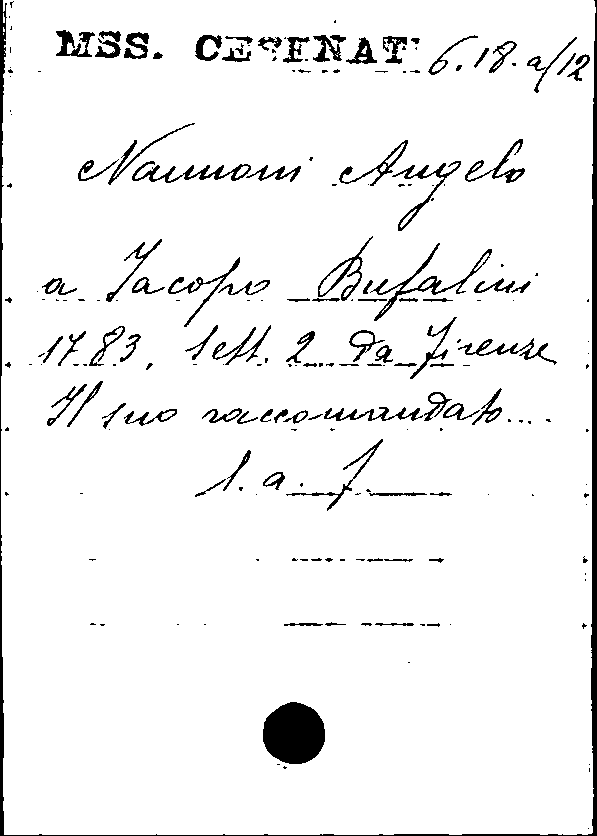 MSS. CESENATI 6.18.a/12
Nannoni Angelo
a Jacopo Bufalini
1783, Sett. 2 da Firenze
Il suo raccomandato....
l. a. f.